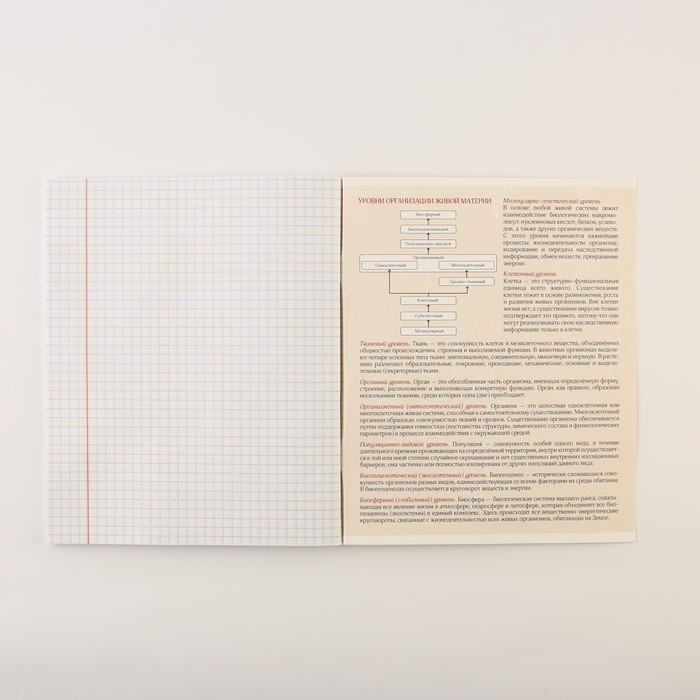 УРОВНИ ОРГАНИЗАЦИИ ЖИВОЙ МАТЕРИИ
Биосферный
Биогеоценотический
Популяционно-видовой
Организменный
Одноклеточный
Многоклеточный
Органо-тканевый
Клеточный
Субклеточный
Молекулярный
Молекулярно-генетический уровень
В основе любой живой системы лежит
взаимодействие биологических макромо-
лекул: нуклеиновых кислот, белков, углево-
дов, а также других органических веществ.
С этого уровня начинаются важнейшие
процессы жизнедеятельности организма:
кодирование и передача наследственной
информации, обмен веществ, превращение
энергии.
Клеточный уровень
Клетка — это структурно-функциональная
единица всего живого. Существование
клетки лежит в основе размножения, роста
и развития живых организмов. Вне клетки
жизни нет, а существование вирусов только
подтверждает это правило, потому что они
могут реализовывать свою наследственную
информацию только в клетке.
Тканевый уровень. Ткань — это совокупность клеток и межклеточного вещества, объединённых
общностью происхождения, строения и выполняемой функции. В животных организмах выделя-
ют четыре основных типа ткани: эпителиальную, соединительную, мышечную и нервную. В расте-
ниях различают образовательные, покровные, проводящие, механические, основные и выдели-
тельные (секреторные) ткани.
Органный уровень. Орган — это обособленная часть организма, имеющая определённую форму,
строение, расположение и выполняющая конкретную функцию. Орган, как правило, образован
несколькими тканями, среди которых одна (две) преобладает.
Организменный (онтогенетический) уровень. Организм — это целостная одноклеточная или
многоклеточная живая система, способная к самостоятельному существованию. Многоклеточный
организм образован совокупностью тканей и органов. Существование организма обеспечивается
путем поддержания гомеостаза (постоянства структуры, химического состава и физиологических
параметров) в процессе взаимодействия с окружающей средой.
Популяционно-видовой уровень. Популяция — совокупность особей одного вида, в течение
длительного времени проживающих на определённой территории, внутри которой осуществляет-
ся в той или иной степени случайное скрещивание и нет существенных внутренних изоляционных
барьеров; она частично или полностью изолирована от других популяций данного вида.
Биогеоценотический (экосистемный) уровень. Биогеоценоз — исторически сложившаяся сово-
купность организмов разных видов, взаимодействующая со всеми факторами их среды обитания.
В биогеоценозах осуществляется круговорот веществ и энергии.
Биосферный (глобальный) уровень. Биосфера — биологическая система высшего ранга, охваты-
вающая все явления жизни в атмосфере, гидросфере и литосфере, которая объединяет все био-
геоценозы (экосистемы) в единый комплекс. Здесь происходят все вещественно-энергетические
круговороты, связанные с жизнедеятельностью всех живых организмов, обитающих на Земле.